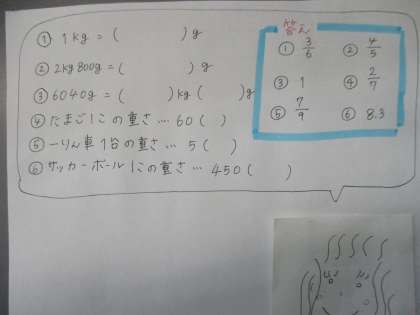 ① 1kg = (　　　) g
② 2kg 800g = (　　　) g
③ 6040g = (　　　) kg (　　　) g
④ たまご1この重さ… 60 (　)
⑤ 一りん車1台の重さ… 5 (　)
⑥ サッカーボール1この重さ… 450 (　　)
答え
① 3/6 ② 4/5
③ 1 ④ 2/7
⑤ 7/9 ⑥ 8.3